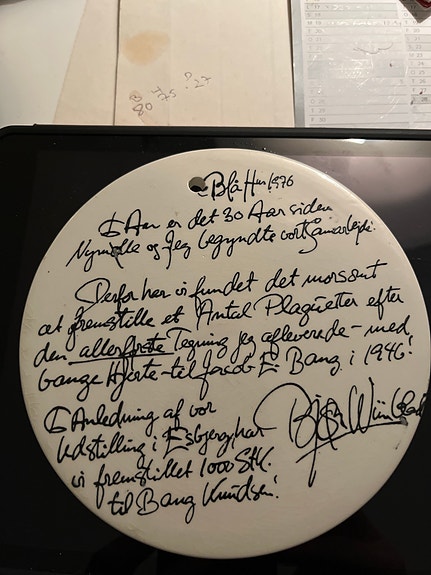 B T P
80 75 . 27
Blå Hus 1976
I Aar er det 30 Aar siden
Nymølle og Jeg begyndte vort Samarbejde.
Derfor har vi fundet det morsomt
at fremstille et Antal Plaquetter efter
den allerførste Tegning jeg afleverede - med
bange Hjerte - til Jacob E. Bang i 1946!
I Anledning af vor
Udstilling i Esbjerg, har
vi fremstillet 1000 Stk.
til Bang Knudsen!
Bjørn Wiinblad